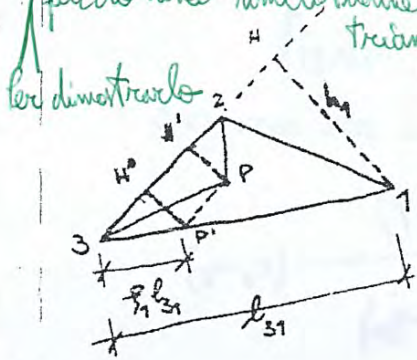 trian
Per dimostrarlo
H
h1
2
H'
H"
P
1
3
P'
ξ1 l31
l31